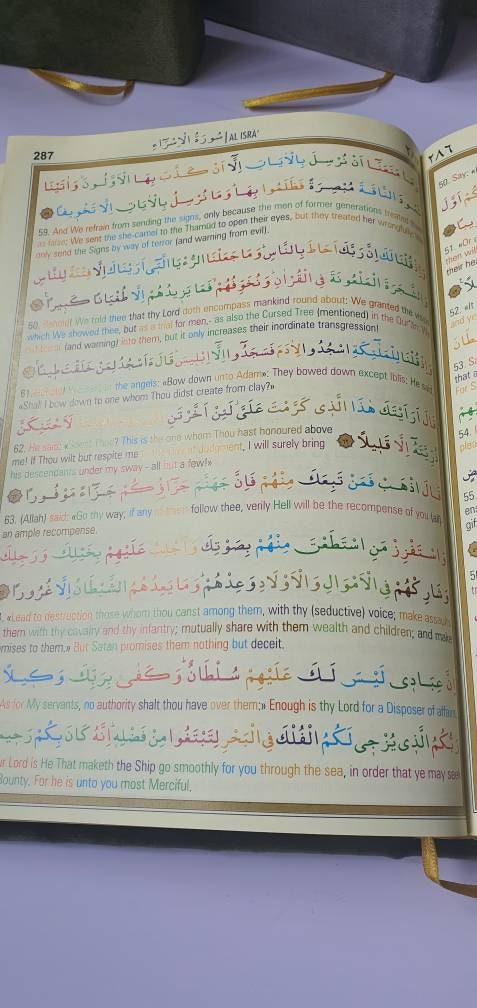 287
سُورَةُ الْإِسْرَاءِ | AL ISRA'
مَنَعَنَا أَنْ نُرْسِلَ بِالْآيَاتِ إِلَّا أَنْ كَذَّبَ بِهَا الْأَوَّلُونَ وَآتَيْنَا
النَّاقَةَ مُبْصِرَةً فَظَلَمُوا بِهَا وَمَا نُرْسِلُ بِالْآيَاتِ إِلَّا تَخْوِيفًا
59. And We refrain from sending the signs, only because the men of former generations treated them
as false: We sent the she-camel to the Thamud to open their eyes, but they treated her wrongfully:
only send the Signs by way of terror (and warning from evil).
قُلْنَا لَكَ إِنَّ رَبَّكَ أَحَاطَ بِالنَّاسِ وَمَا جَعَلْنَا الرُّؤْيَا الَّتِي أَرَيْنَاكَ إِلَّا فِتْنَةً لِلنَّاسِ
وَالشَّجَرَةَ الْمَلْعُونَةَ فِي الْقُرْآنِ وَنُخَوِّفُهُمْ فَمَا يَزِيدُهُمْ إِلَّا طُغْيَانًا كَبِيرًا
60. Behold! We told thee that thy Lord doth encompass mankind round about: We granted the vision
which We showed thee, but as a trial for men,- as also the Cursed Tree (mentioned) in the Qur'an: We
put terror (and warning) into them, but it only increases their inordinate transgression!
قُلْنَا لِلْمَلَائِكَةِ اسْجُدُوا لِآدَمَ فَسَجَدُوا إِلَّا إِبْلِيسَ قَالَ أَأَسْجُدُ لِمَنْ خَلَقْتَ طِينًا
61. Behold! We said to the angels: «Bow down unto Adam»: They bowed down except Iblis: He said,
«Shall I bow down to one whom Thou didst create from clay?»
قَالَ أَرَأَيْتَكَ هَذَا الَّذِي كَرَّمْتَ عَلَيَّ لَئِنْ أَخَّرْتَنِ إِلَى يَوْمِ الْقِيَامَةِ لَأَحْتَنِكَنَّ
ذُرِّيَّتَهُ إِلَّا قَلِيلًا
62. He said: «Seest Thou? This is the one whom Thou hast honoured above
me! If Thou wilt but respite me to the Day of Judgment, I will surely bring
his descendants under my sway - all but a few!»
قَالَ اذْهَبْ فَمَنْ تَبِعَكَ مِنْهُمْ فَإِنَّ جَهَنَّمَ جَزَاؤُكُمْ جَزَاءً مَوْفُورًا
63. (Allah) said: «Go thy way; if any of them follow thee, verily Hell will be the recompense of you (all)
an ample recompense.
وَاسْتَفْزِزْ مَنِ اسْتَطَعْتَ مِنْهُمْ بِصَوْتِكَ وَأَجْلِبْ عَلَيْهِمْ بِخَيْلِكَ وَرَجِلِكَ
وَشَارِكْهُمْ فِي الْأَمْوَالِ وَالْأَوْلَادِ وَعِدْهُمْ وَمَا يَعِدُهُمُ الشَّيْطَانُ إِلَّا غُرُورًا
«Lead to destruction those whom thou canst among them, with thy (seductive) voice; make assaults
them with thy cavalry and thy infantry; mutually share with them wealth and children; and make
mises to them.» But Satan promises them nothing but deceit.
عِبَادِي لَيْسَ لَكَ عَلَيْهِمْ سُلْطَانٌ وَكَفَى بِرَبِّكَ وَكِيلًا
As for My servants, no authority shalt thou have over them:» Enough is thy Lord for a Disposer of affairs.
رَبُّكُمُ الَّذِي يُزْجِي لَكُمُ الْفُلْكَ فِي الْبَحْرِ لِتَبْتَغُوا مِنْ فَضْلِهِ إِنَّهُ كَانَ بِكُمْ رَحِيمًا
ur Lord is He That maketh the Ship go smoothly for you through the sea, in order that ye may see
Bounty. For he is unto you most Merciful.
٢٨٦
50. Say: «
51. «Or
then will
their he
52. «It
and ye
53. Sa
that a
For S
54.
plea
55.
en
gif